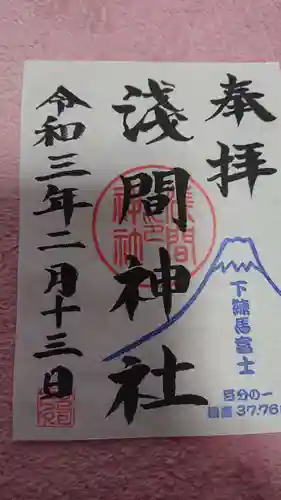 奉拝
浅間神社
下練馬富士
百分の一
標高 37.76
令和三年二月十三日